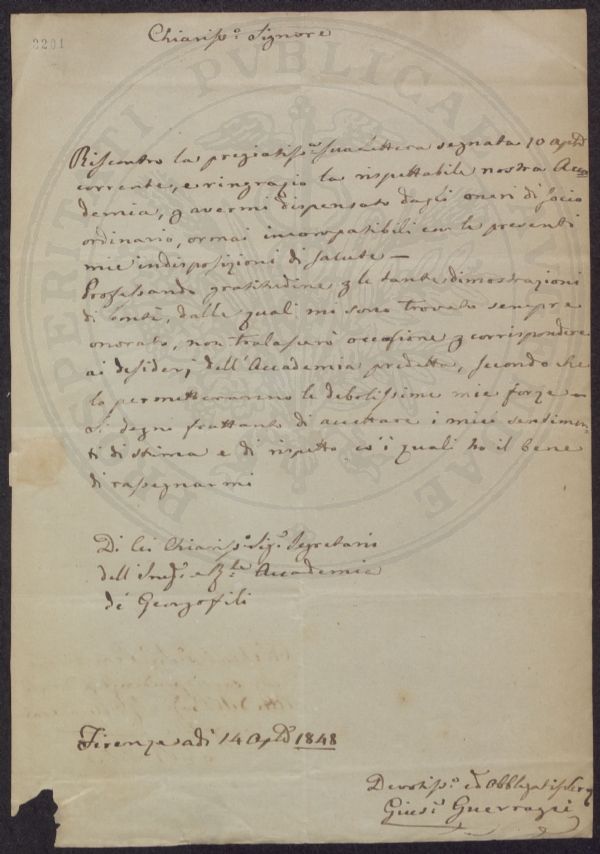 2291
Chiariss.º Signore
PROSPERITATI PVBLICAE AVGENDAE
Riscontro la pregiatiss.ª sua Lettera segnata 10 Aple
corrente, e ringrazio la rispettabile nostra Acca
demia, p avermi dispensato dagli oneri di socio
ordinario, ormai incompatibili con le presenti
mie indisposizioni di salute —
Professando gratitudine p le tante dimostrazioni
di bontà, dalle quali mi sono trovato sempre
onorato, non tralascerò occasione p corrispondere
ai desiderj dell'Accademia predetta, secondo che
lo permetteranno le debolissime mie forze —
Si degni frattanto di accettare i miei sentimen-
ti di stima e di rispetto co i quali ho il bene
di rassegnarmi
Di Lei Chiariss.º Sig.r Segretario
dell' I. e R.le Accademia
de' Georgofili
Firenze adi 14 Aple 1848
Devotiss.º ed Obbligatiss. Ser.
Gius.e